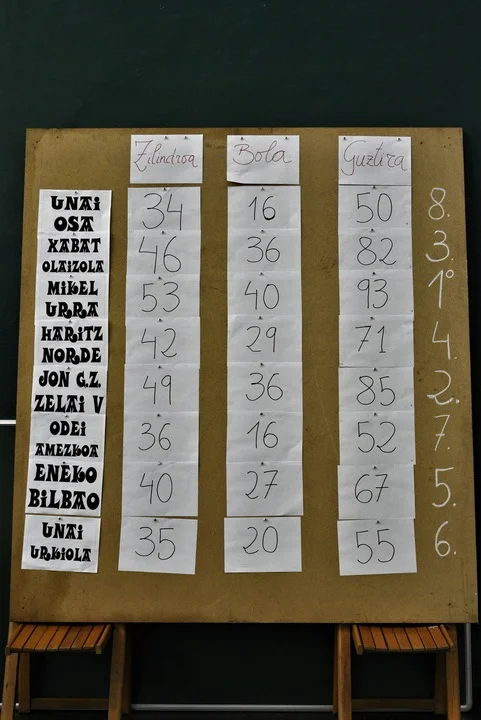 Zilindroa Bola Guztira
UNAI OSA 34 16 50 8.
XABAT OLAIZOLA 46 36 82 3.
MIKEL URRA 53 40 93 1º
HARITZ NORDE 42 29 71 4.
JON G.Z. ZELAI V 49 36 85 2.
ODEI AMEZKOA 36 16 52 7.
ENEKO BILBAO 40 27 67 5.
UNAI URKIOLA 35 20 55 6.